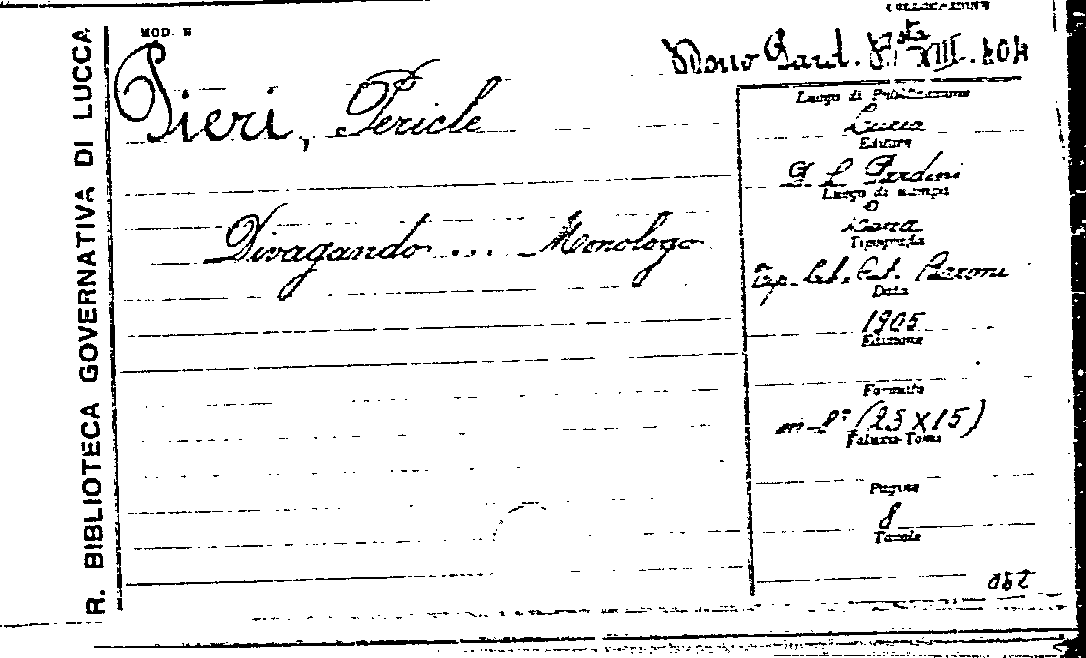 R. BIBLIOTECA GOVERNATIVA DI LUCCA
MOD. B
COLLOCAZIONE
Bta XIII. 404
Pieri, Pericle
Divagando ... Monologo
Luogo di Pubblicazione
Lucca
Editore
G. L. Pardini
Luogo di stampa
Tipografia
Tip. Baroni
Data
1905
Edizione
Formato
in 8° (25 X 15)
Volume-Tomo
Pagine
8
Tavole